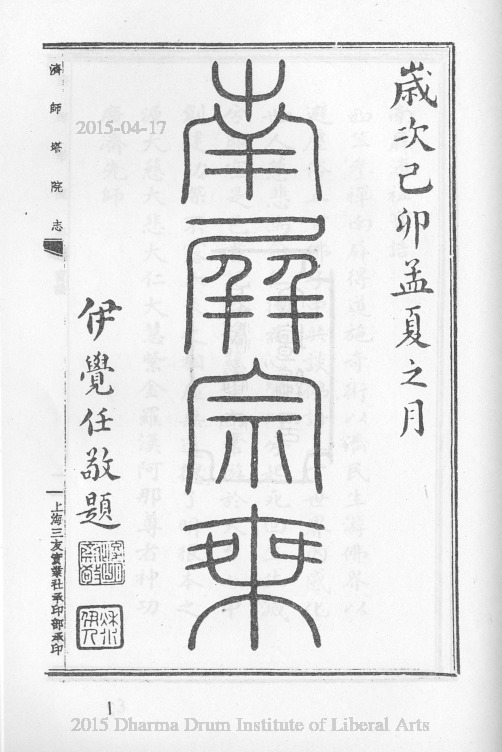 歲次己卯孟夏之月
南屏宗乘
伊覺任敬題
濟師塔院志
上海三友實業社承印部承印
2015-04-17
1
2015 Dharma Drum Institute of Liberal Arts